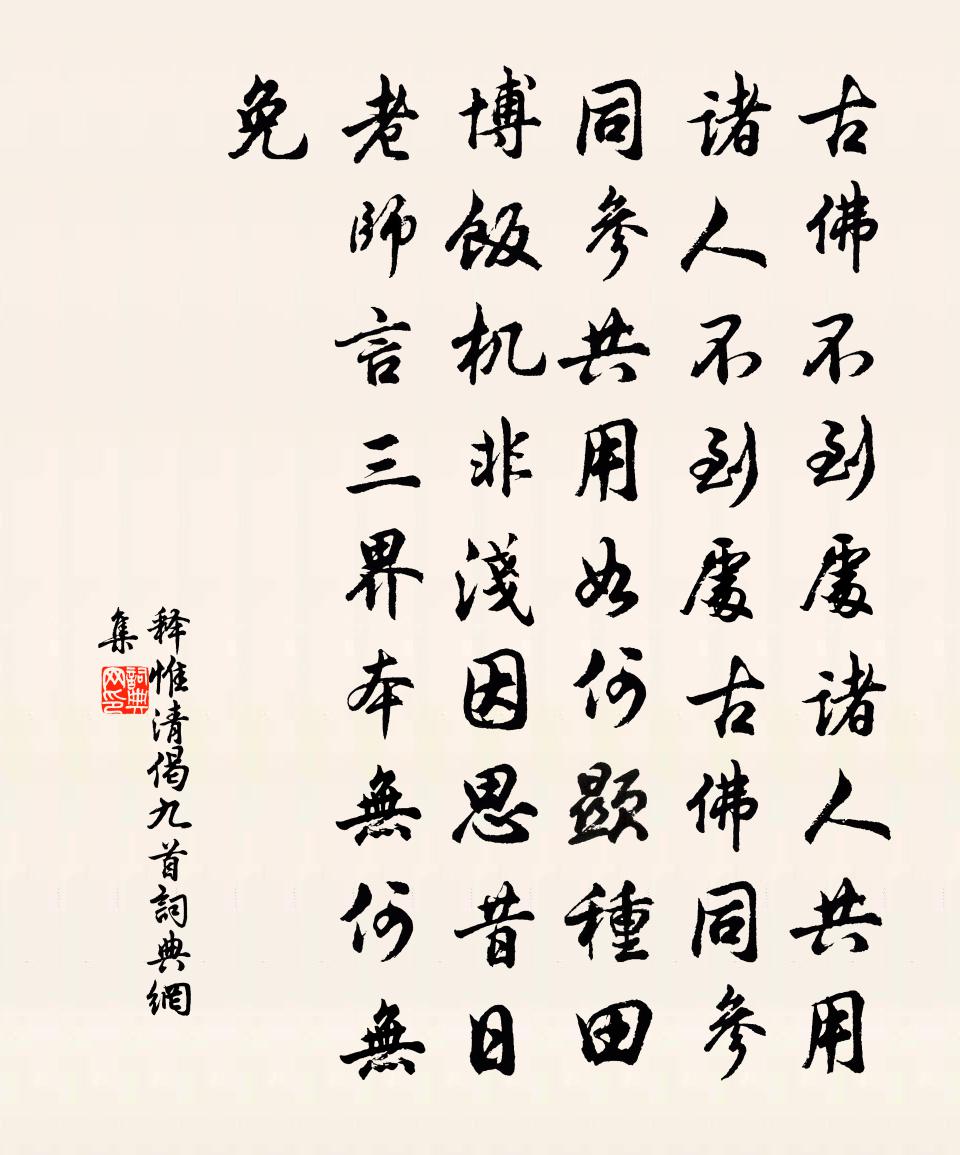 古佛不到處諸人共用
諸人不到處古佛同參
同參共用如何顯種田
博飯机非淺因思昔日
老師言三界本無何無
免
释惟清偈九首詞典網
集
詞典
网印